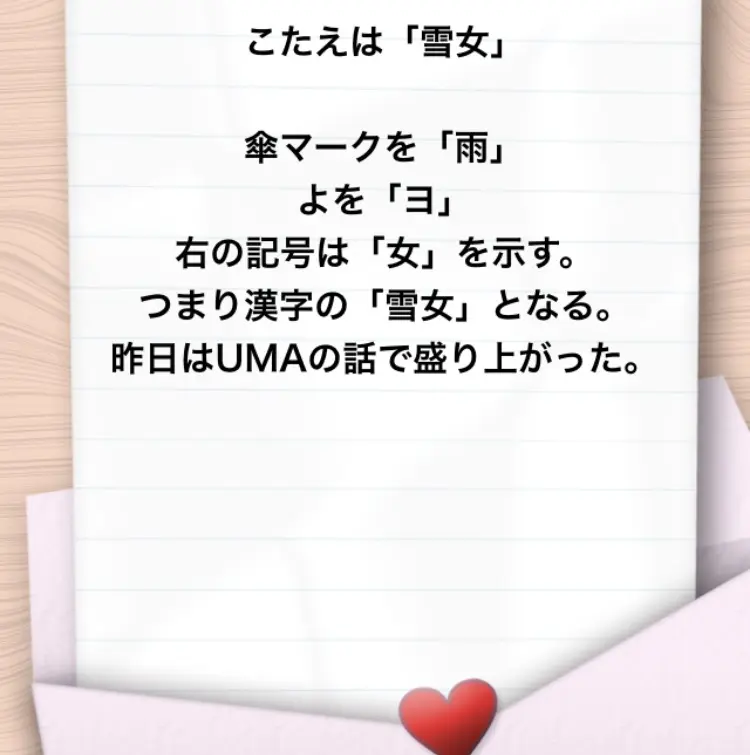 こたえは「雪女」
傘マークを「雨」
よを「ヨ」
右の記号は「女」を示す。
つまり漢字の「雪女」となる。
昨日はUMAの話で盛り上がった。